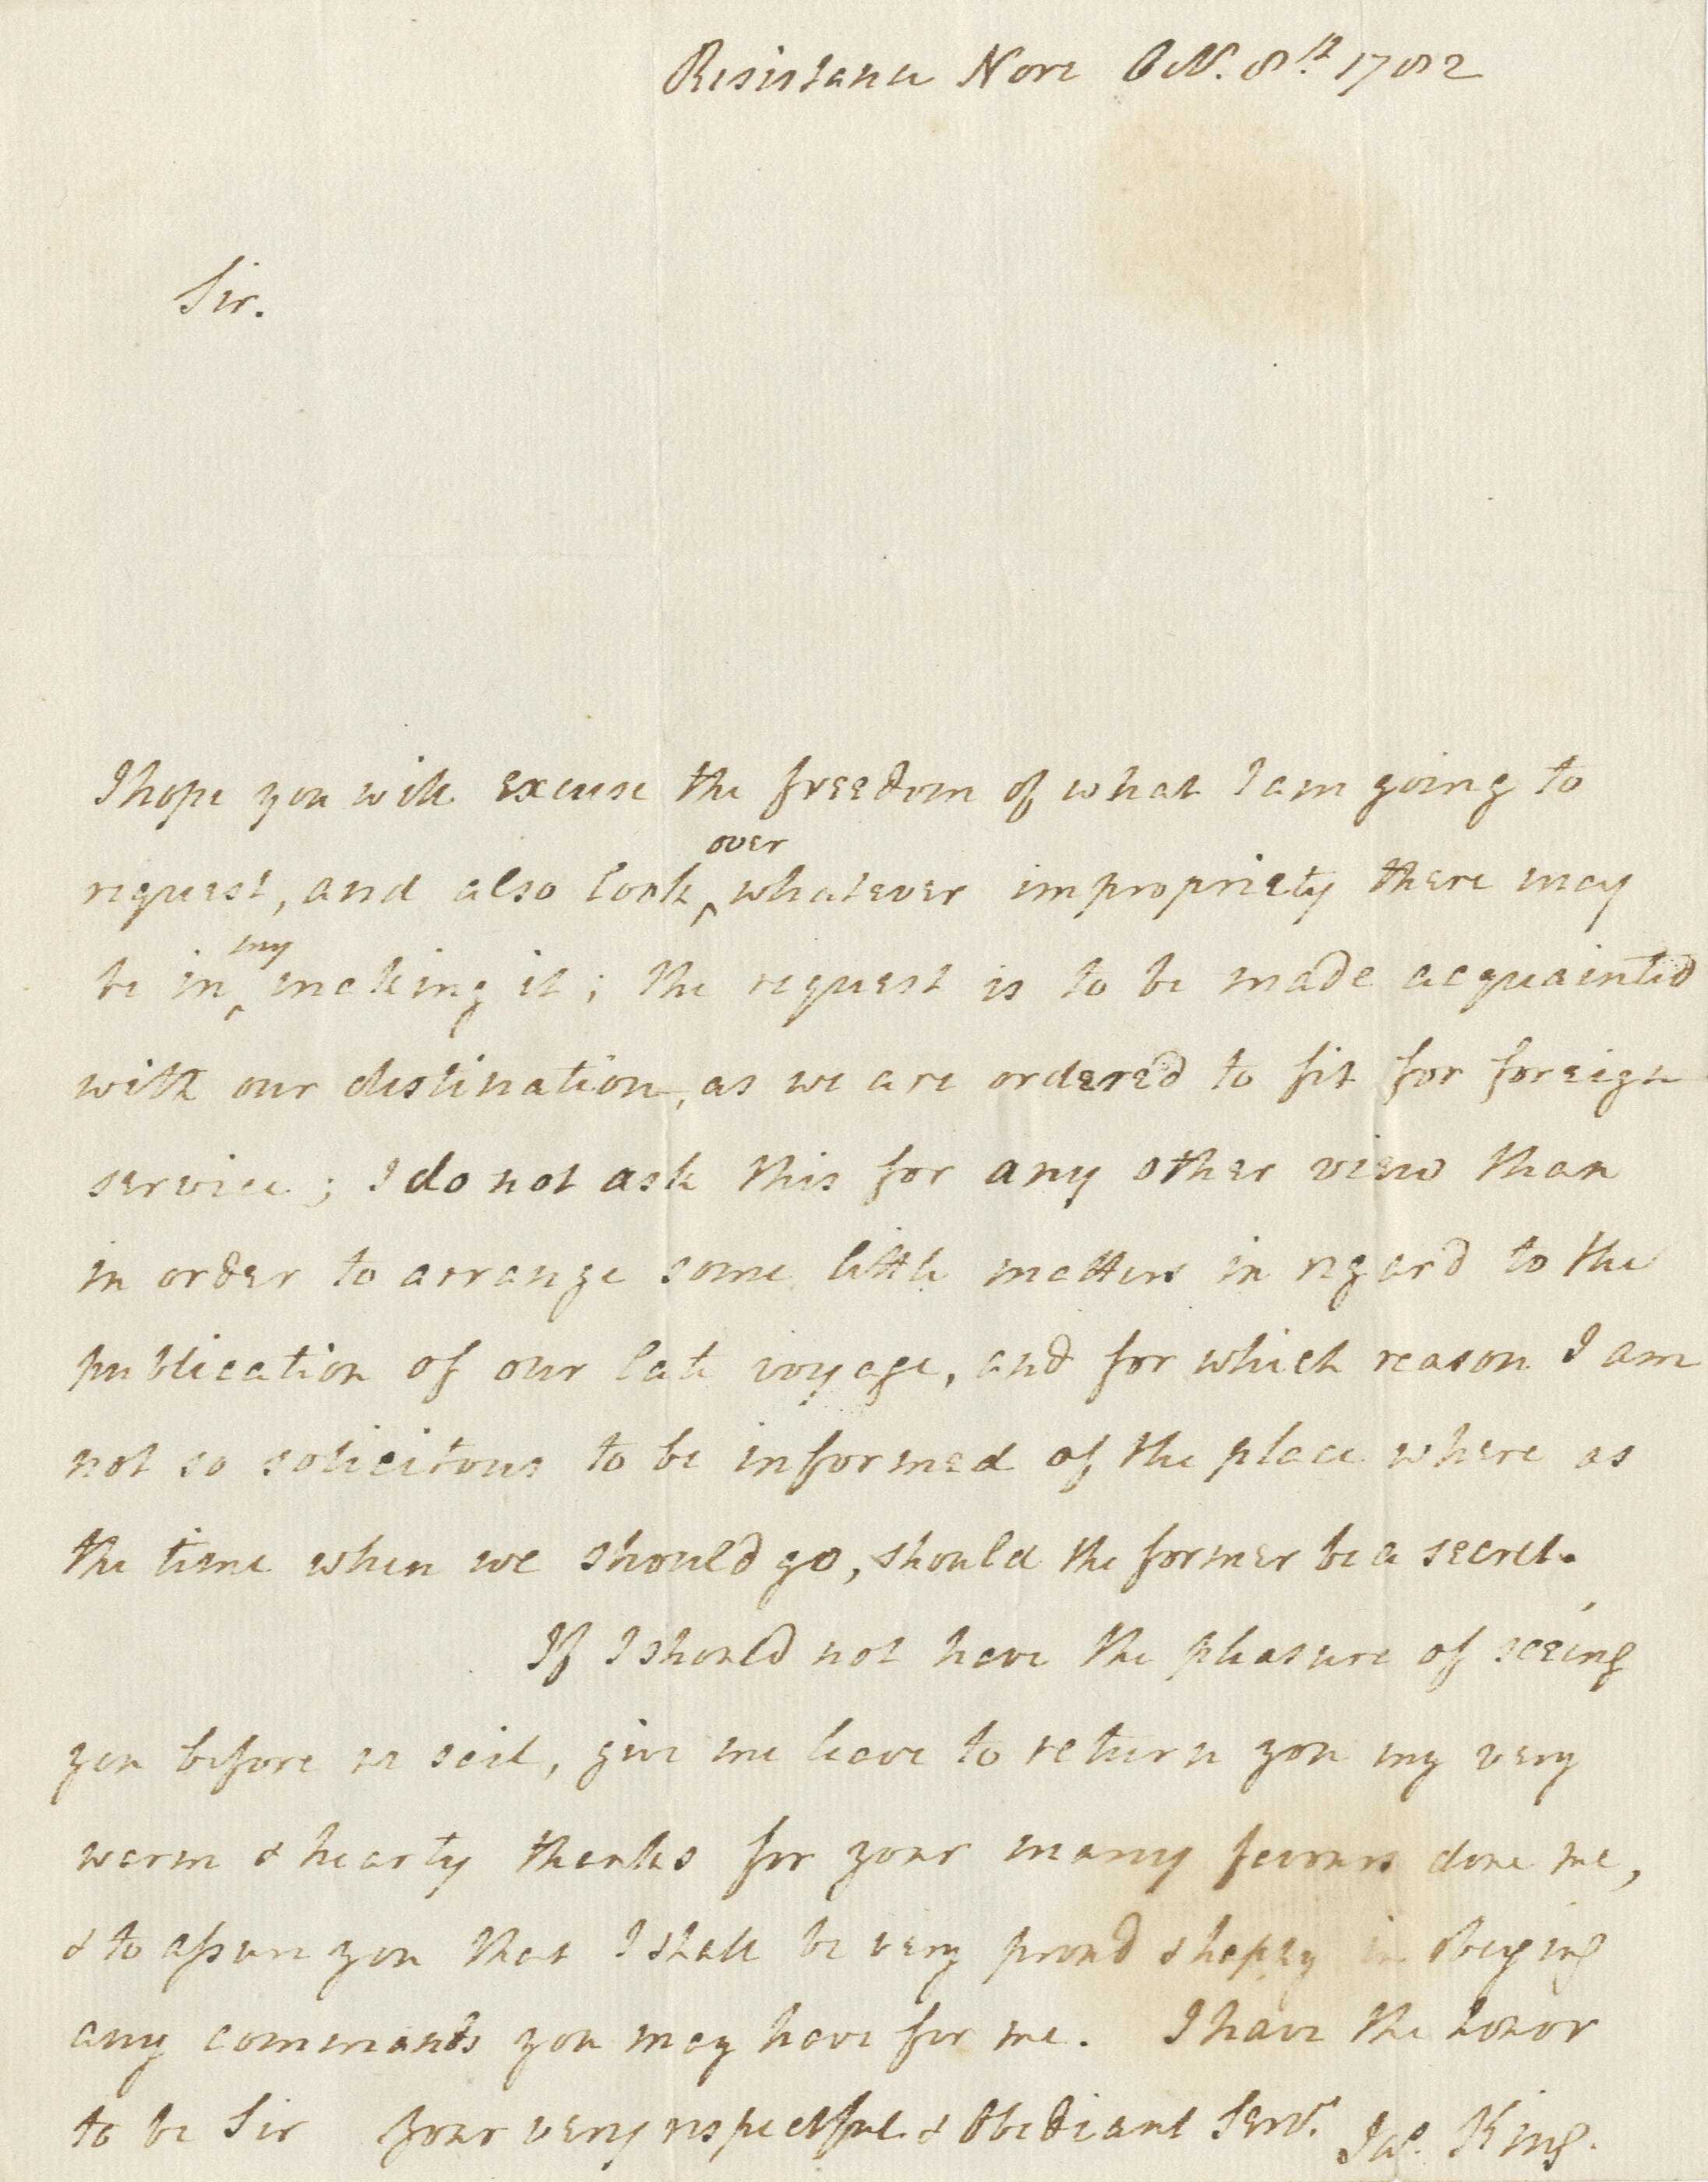 Resistance Nore Oct. 8th 1782
Sir.
I hope you will excuse the freedom of what I am going to
over
request, and also look ‸ whatever impropriety there may
my
be in ‸ making it; the request is to be made acquainted
with our destination, as we are ordered to fit for foreign
service; I do not ask this for any other view than
in order to arrange some little matters in regard to the
publication of our late voyage, and for which reason I am
not so solicitous to be informed of the place where as
the time when we should go, should the former be a secret.
If I should not have the pleasure of seeing
you before we sail, give me leave to return you my very
warm & hearty thanks for your many favours done me,
& to assure you that I shall be very proud & happy in obeying
any commands you may have for me. I have the honor
to be Sir your very respectful & Obediant Servt. Jas. King.